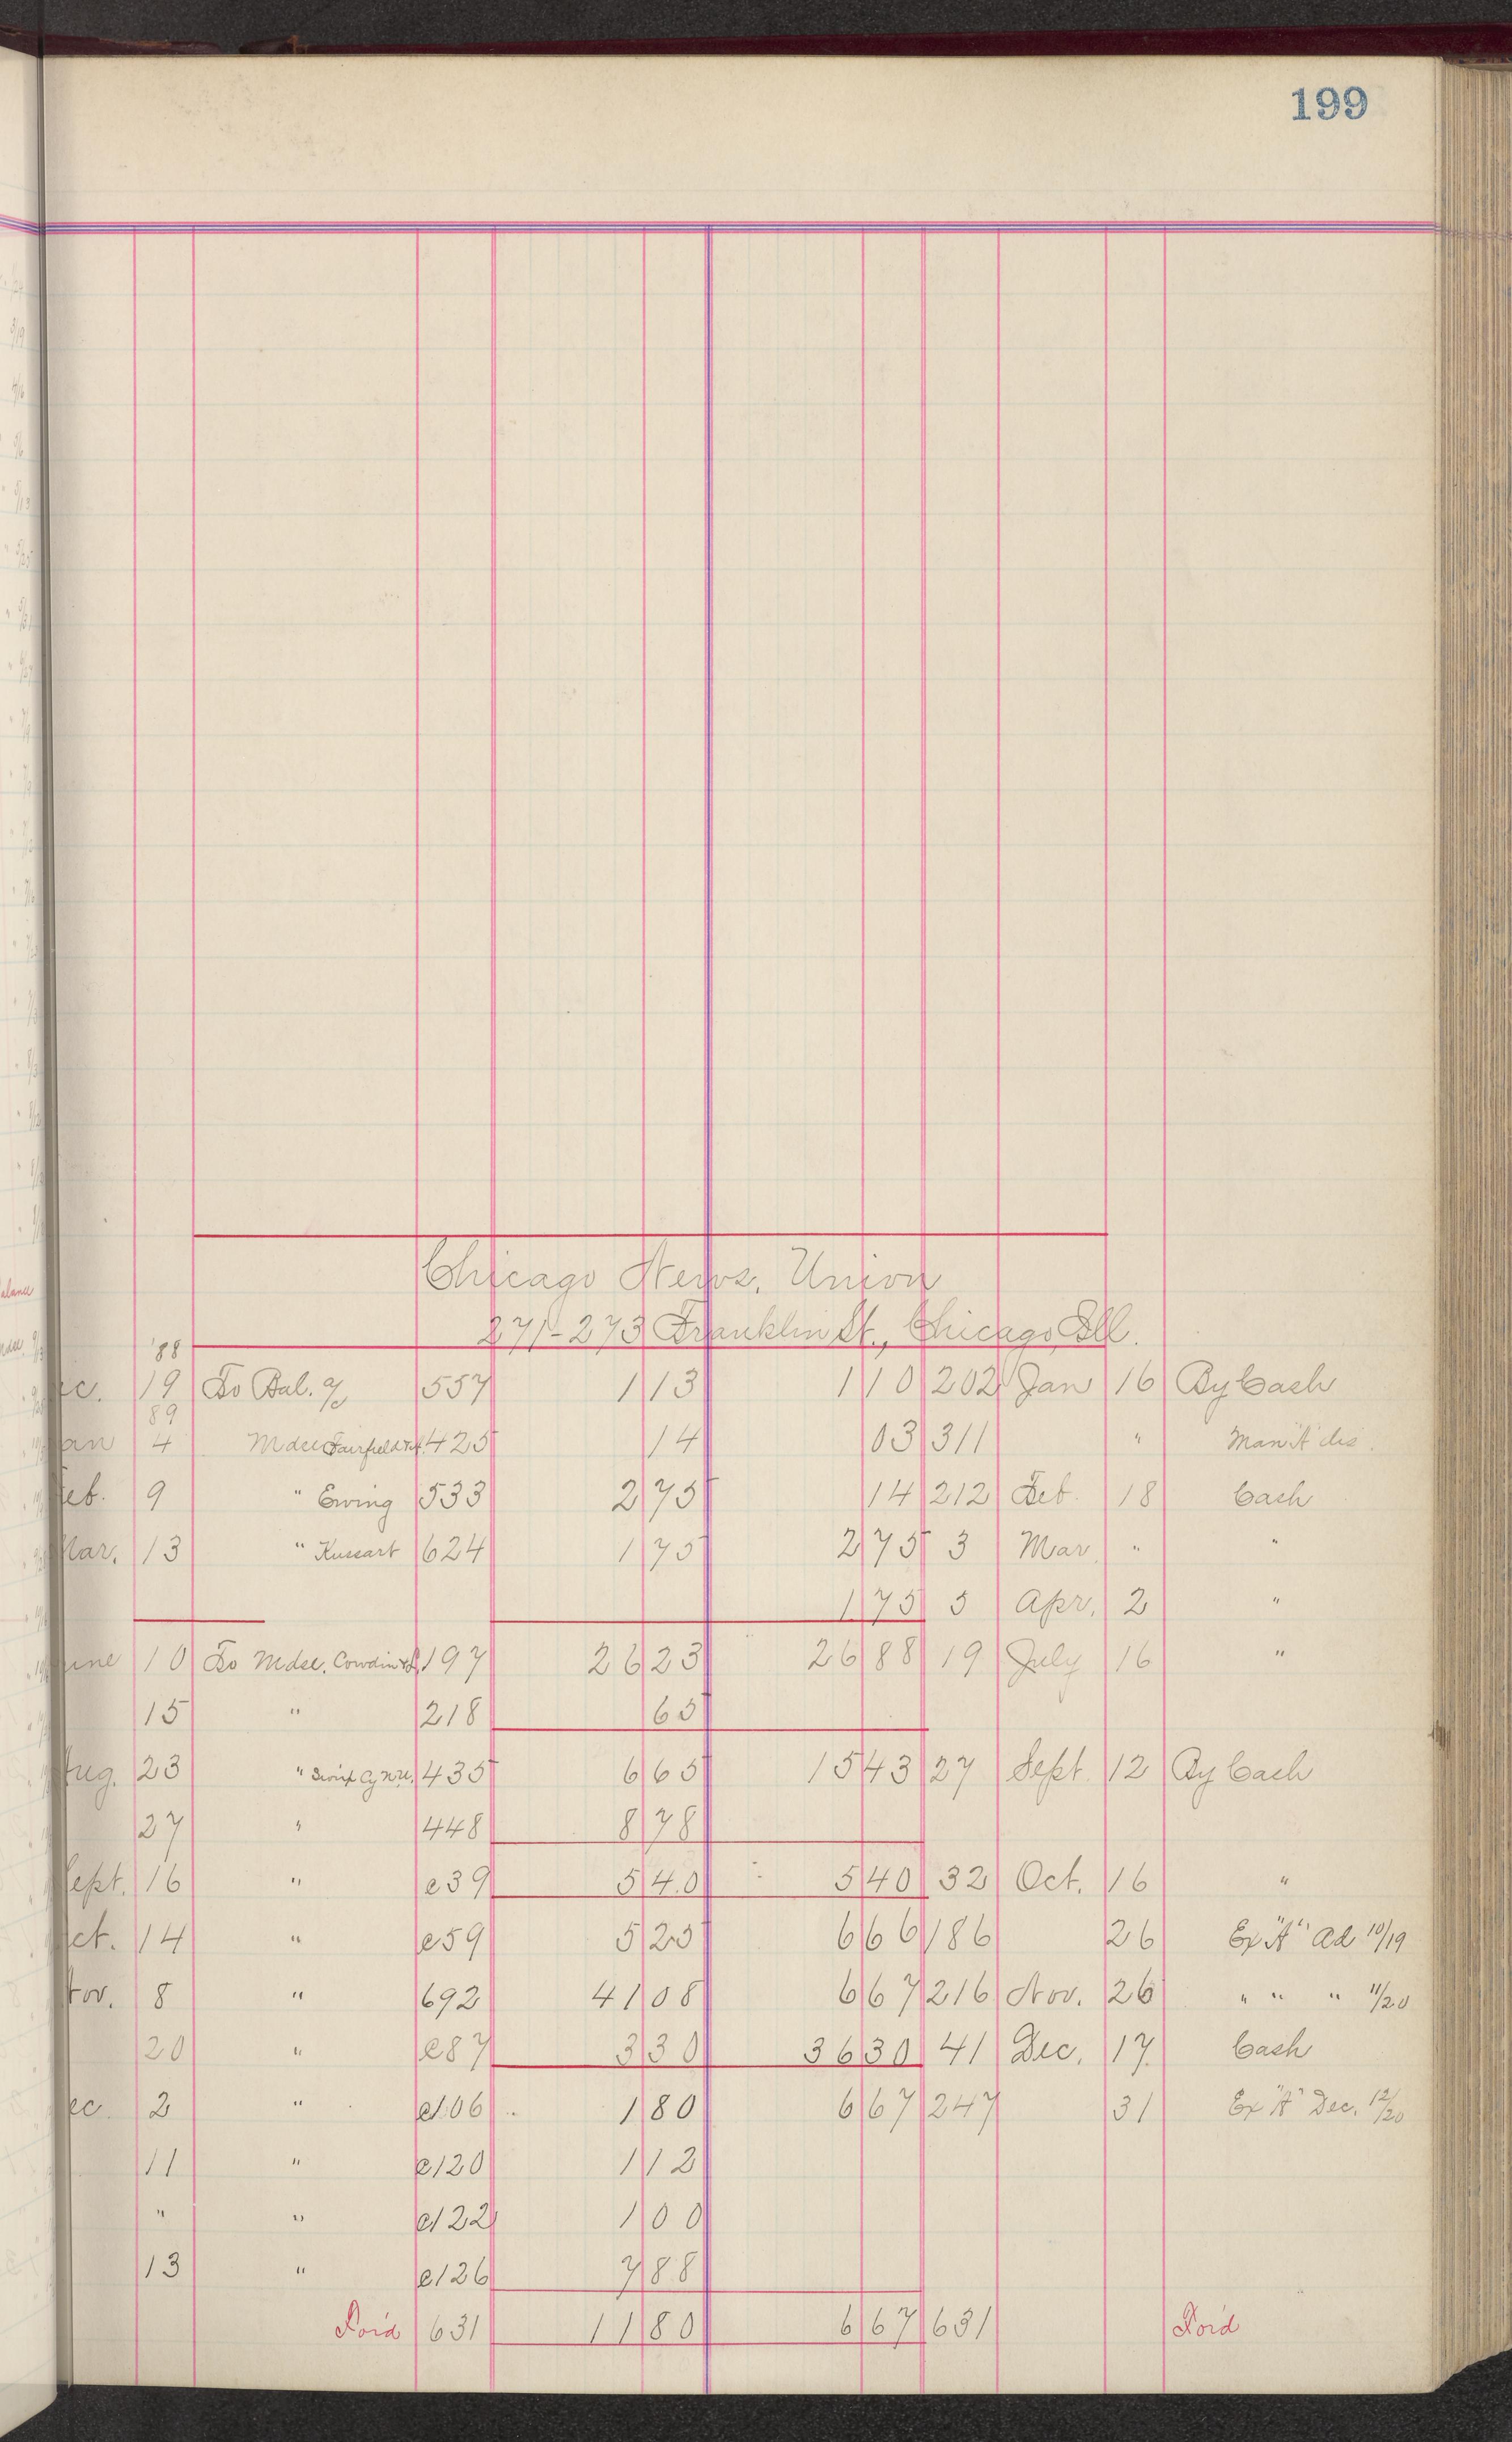 199
Chicago News, Union
271-273 Franklin St., Chicago Ill.
'88
ec. 19 To Bal. a/c 557 1 13 1 10 202 Jan 16 By Cash
89
an 4 Mdse Fairfield 425 14 03 311 " Man "A" dis.
eb. 9 " Ewing 533 2 75 14 212 Feb. 18 Cash
Mar. 13 " Kussart 624 1 75 2 75 3 Mar " "
1 75 5 Apr. 2 "
une 10 To Mdse. Cowdin 197 26 23 26 88 19 July 16 "
15 " 218 65
Aug. 23 " 435 6 65 15 43 27 Sept. 12 By Cash
27 " 448 8 78
Sept. 16 " e39 5 40 5 40 32 Oct. 16 "
ct. 14 " e59 5 25 6 66 186 26 Ex "A" Ad 10/19
Nov. 8 " 692 41 08 6 67 216 Nov. 26 " " " 11/20
20 " e87 3 30 36 30 41 Dec. 17. Cash
ec. 2 " e106 1 80 6 67 247 31 Ex "A" Dec. 12/20
11 " e120 1 12
" " e122 1 00
13 " e126 7 88
For'd 631 11 80 6 67 631 For'd